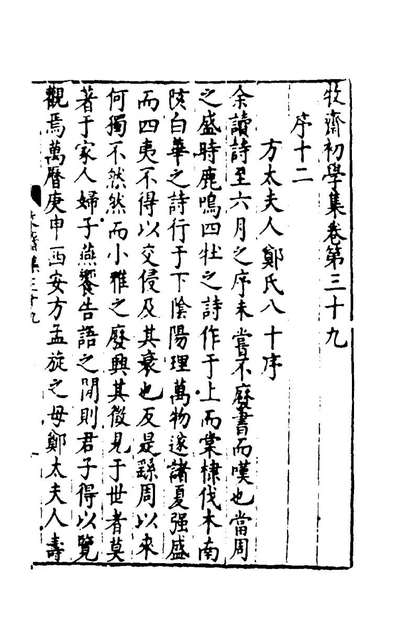 牧齋初學集卷第三十九
序十二
方太夫人鄭氏八十序
余讀詩至六月之序未嘗不廢書而嘆也當周
之盛時鹿鳴四牡之詩作于上而棠棣伐木南
陔白華之詩行于下陰陽理萬物遂諸夏强盛
而四夷不得以交侵及其衰也反是繇周以來
何獨不然然而小雅之廢興其徵見于世者莫
著于家人婦子燕饗告語之閒則君子得以覽
觀焉萬曆庚申西安方孟旋之母鄭太夫人壽
集三十九